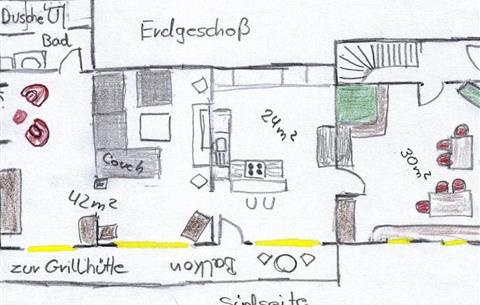 Dusche
Bad
Erdgeschoß
24m²
Couch
30m²
42m²
zur Grillhütte
Balkon
Südseite